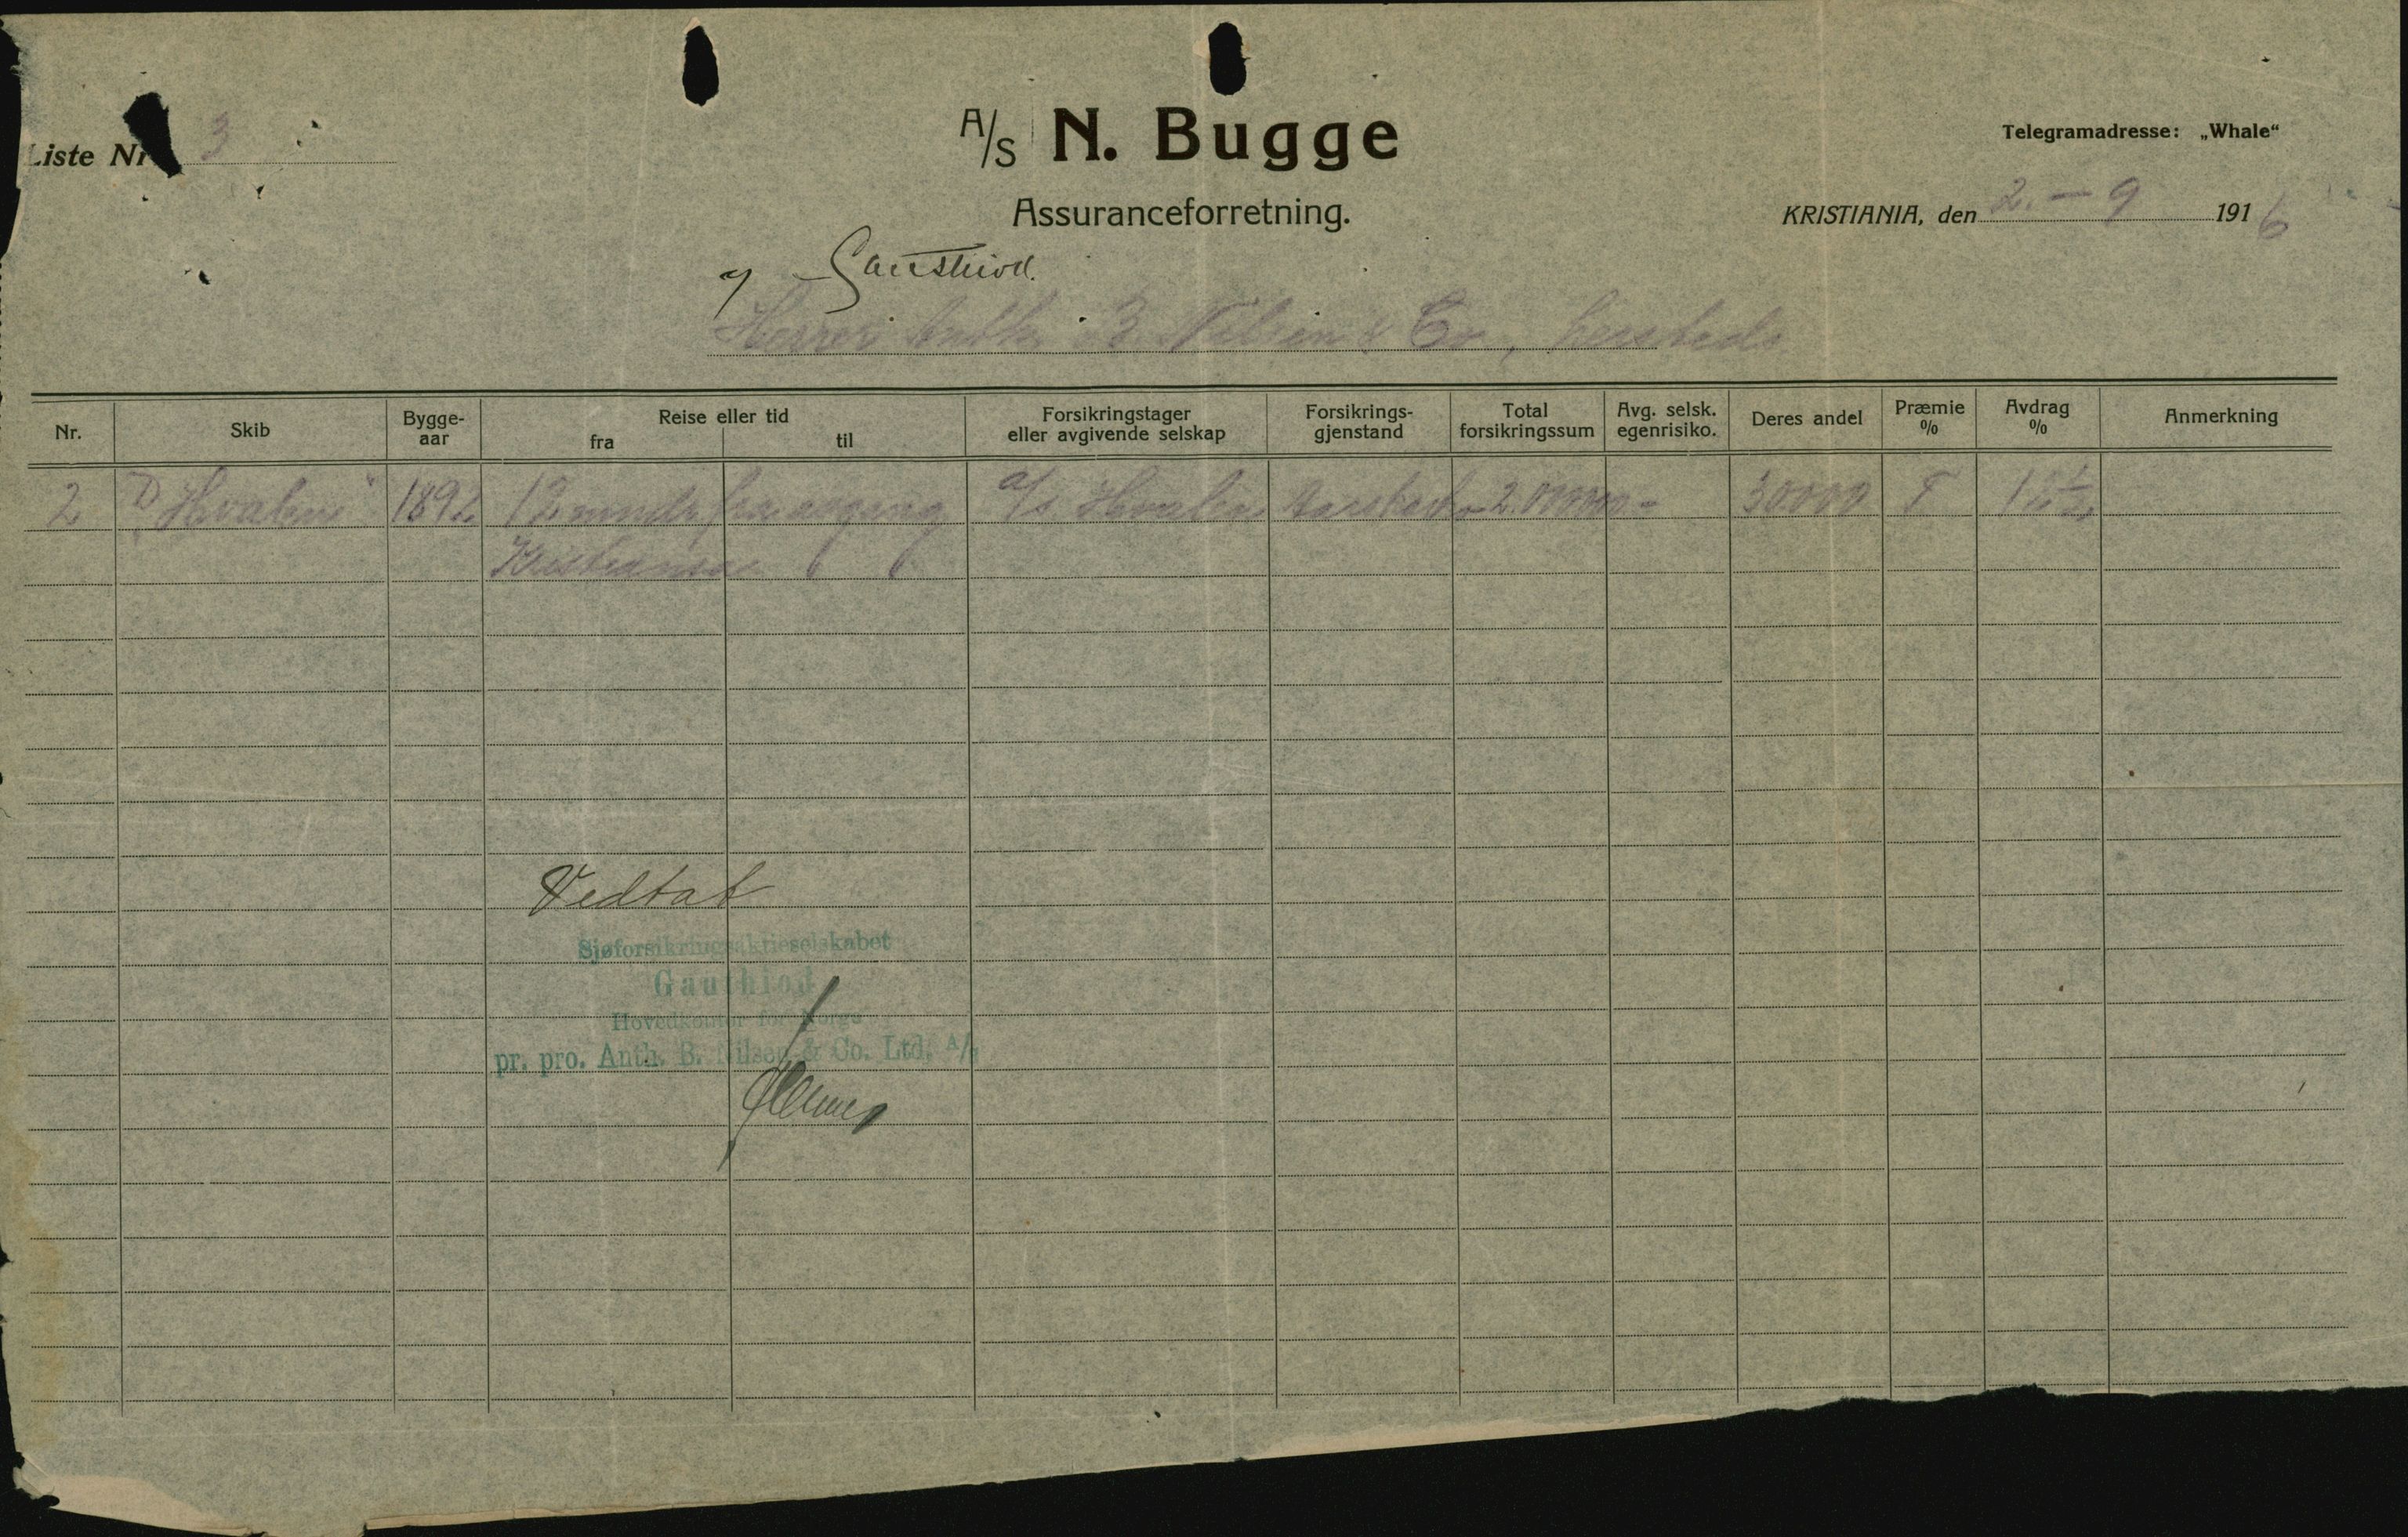 Liste Nr 3
A/S N. Bugge
Assuranceforretning.
Telegramadresse: „Whale“
KRISTIANIA, den 2. – 9 1916
Gauthiod.
Herrer Anth. B. Nilsen & Co, hersteds
Nr. Skib Bygge-aar Reise eller tid fra til Forsikringstager eller avgivende selskap Forsikrings-gjenstand Total forsikringssum Avg. selsk. egenrisiko. Deres andel Præmie % Avdrag % Anmerkning
2 D/ „Hvalen“ 1892 12 mndr fra avgang a/s Hvalen 2.000000- 30000
Kristiansa
Vedtat
Sjøforsikringsaktieselskabet
Gauthiod
Hovedkontor for Norge
pr. pro. Anth. B. Nilsen & Co. Ltd. A/S